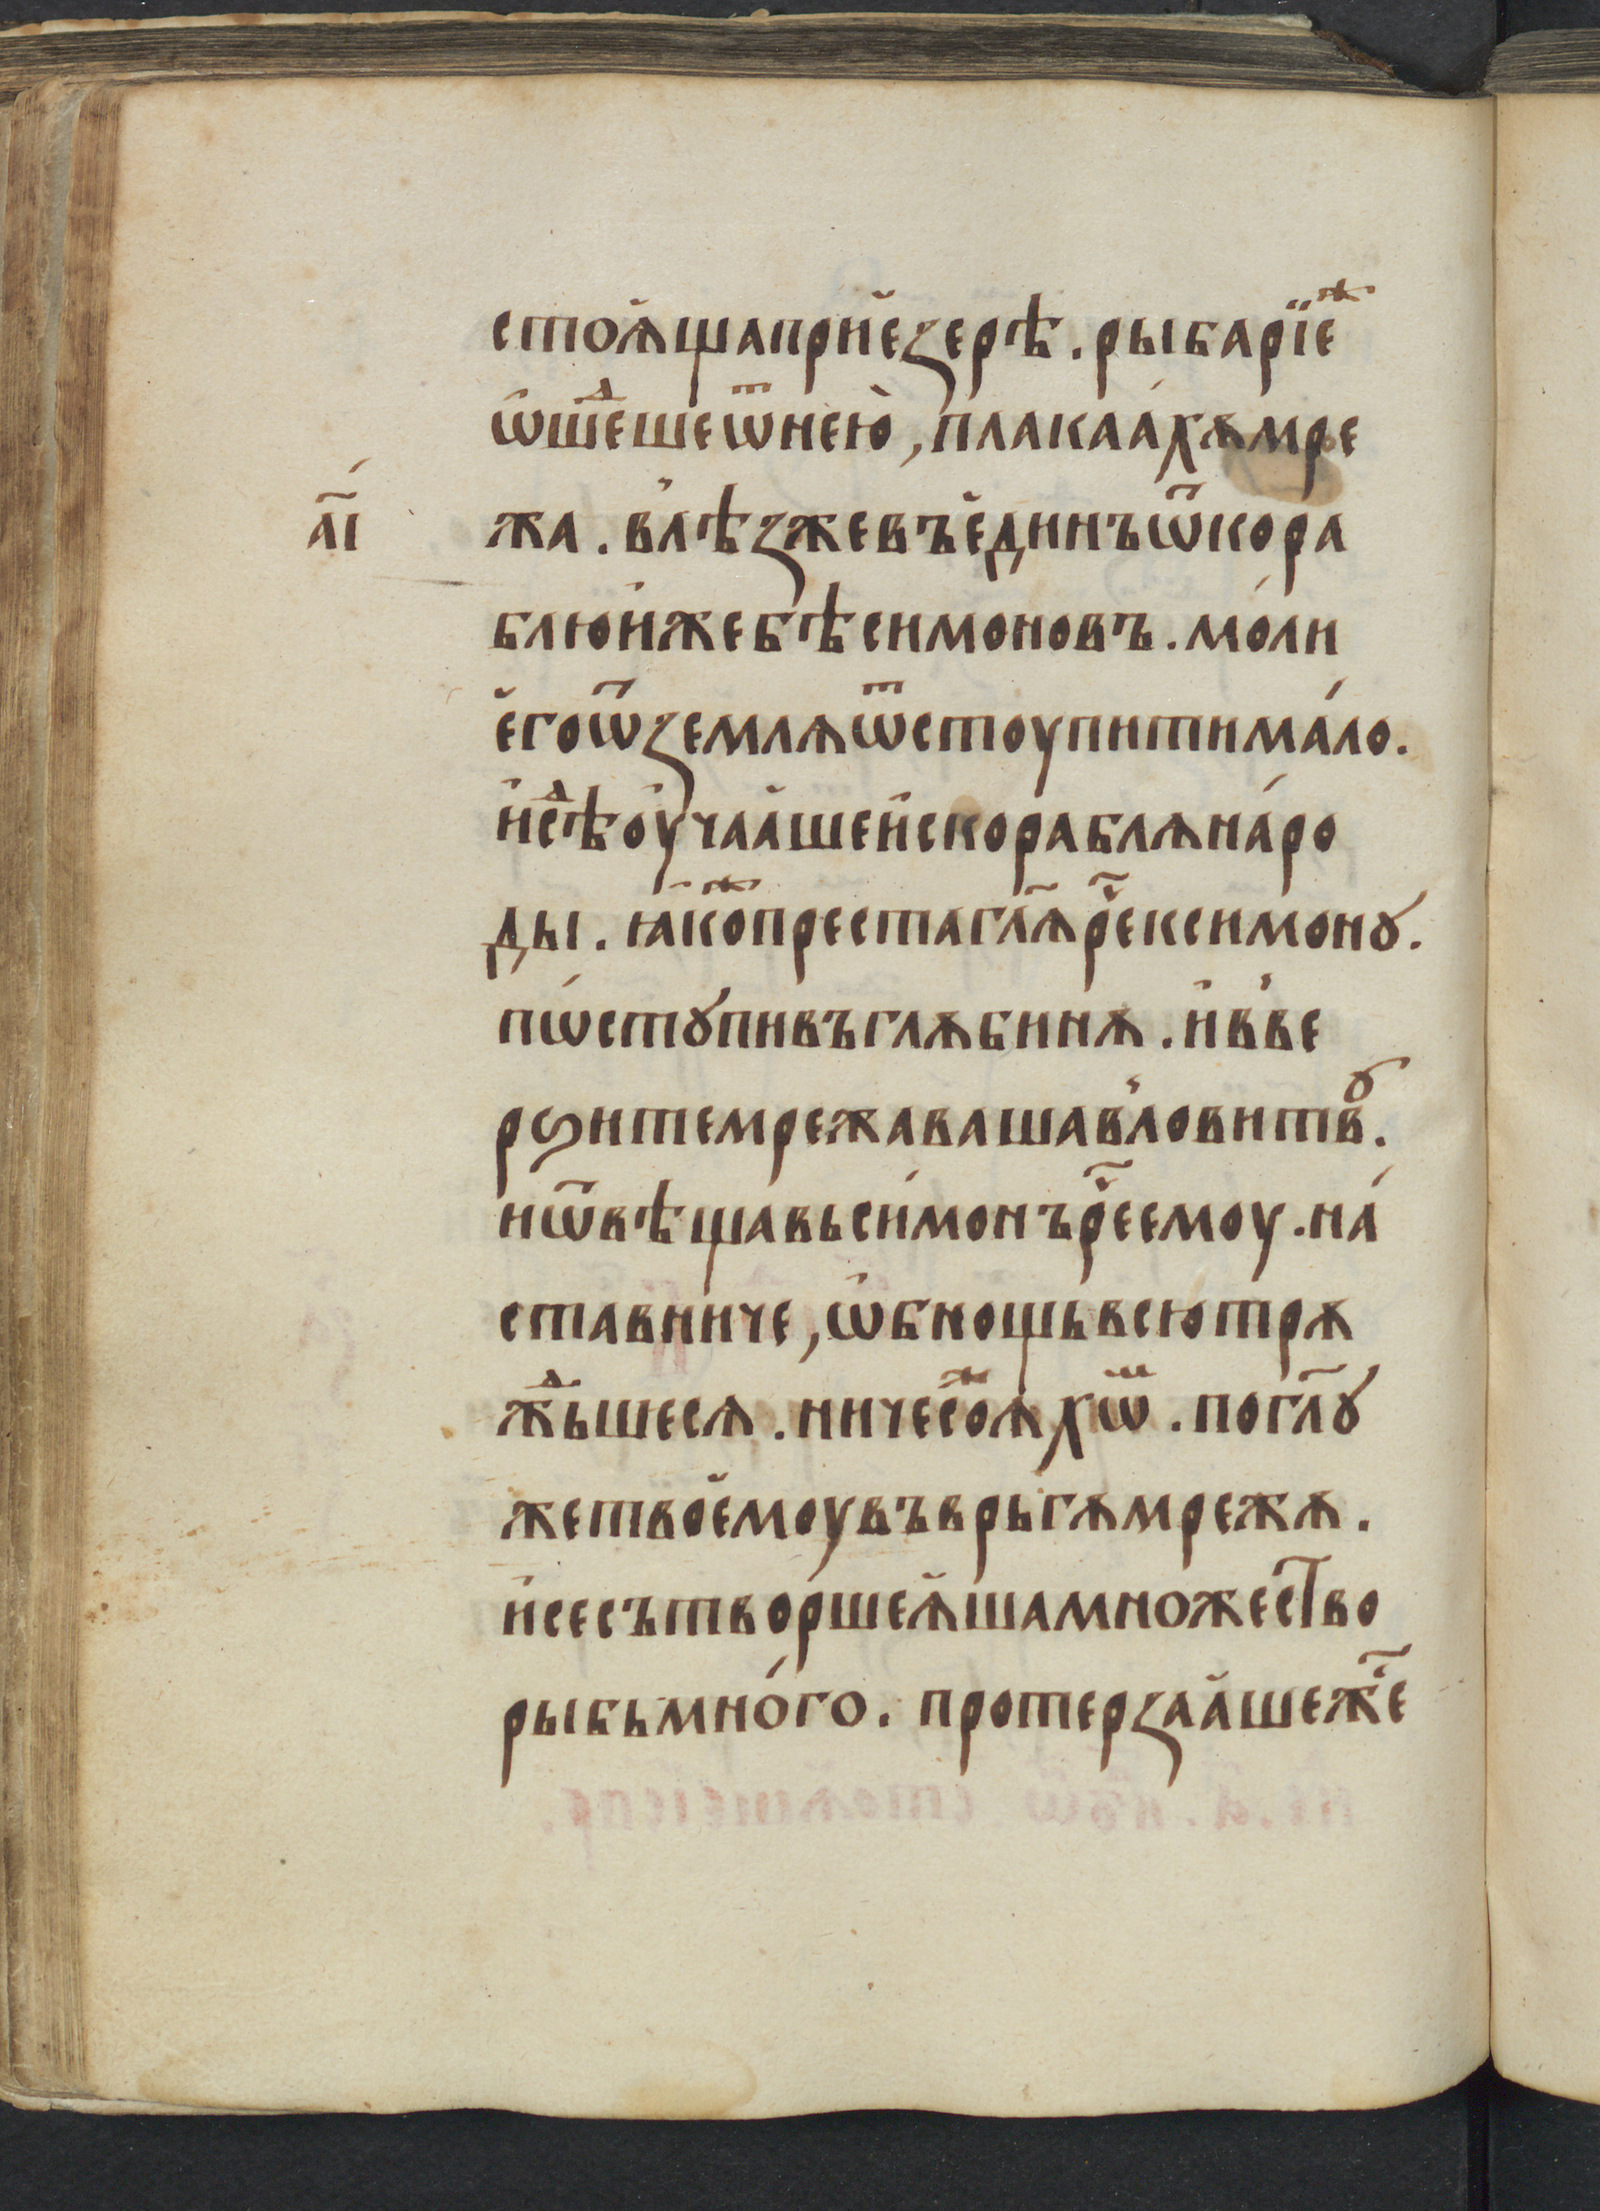 стоѧ̈ща прѝе̑зерѣ . рыбарїеⷤ
ѿше́дⷣше ѿⷮнею̀ , плакаа́хѫ мре
а҃і жа . влѣ́з же въе̑динъ ѿ кора
блю и̑же бѣ симоновъ . мо́ли
е̑го ѿ землѧ ѿⷮстоупити ма́ло .
и̑сѣⷣ оу̑чаа̑ше и̑скораблѧ на́ро
ды . ꙗ҆́коⷤ преста гл҃ѧ рⷱ҇е к симонꙋ .
пѡ́стꙋпи въ глѫбинѫ . и̑вве
рѕите мрежа ваша в ловитвꙋ .
и ѿвѣщавь си́мон ърⷱ҇е емоу . на́
ставниче , ѡ̑б нощь всю трѫ
жⷣьшесѧ . ничесоⷤ ѧ хѡⷨ . по гл҃ꙋ
же твое̑моу въврьгѫ мрежѫ .
и̑се сътво́рше ѧ̑ша множество
рыбь мно́го . протерзаа̑ше жⷷ҇е